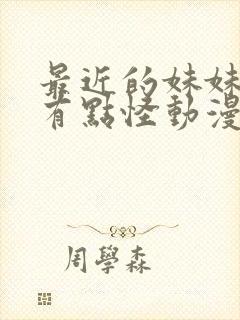 最近的妹妹
有點怪動漫
周學森